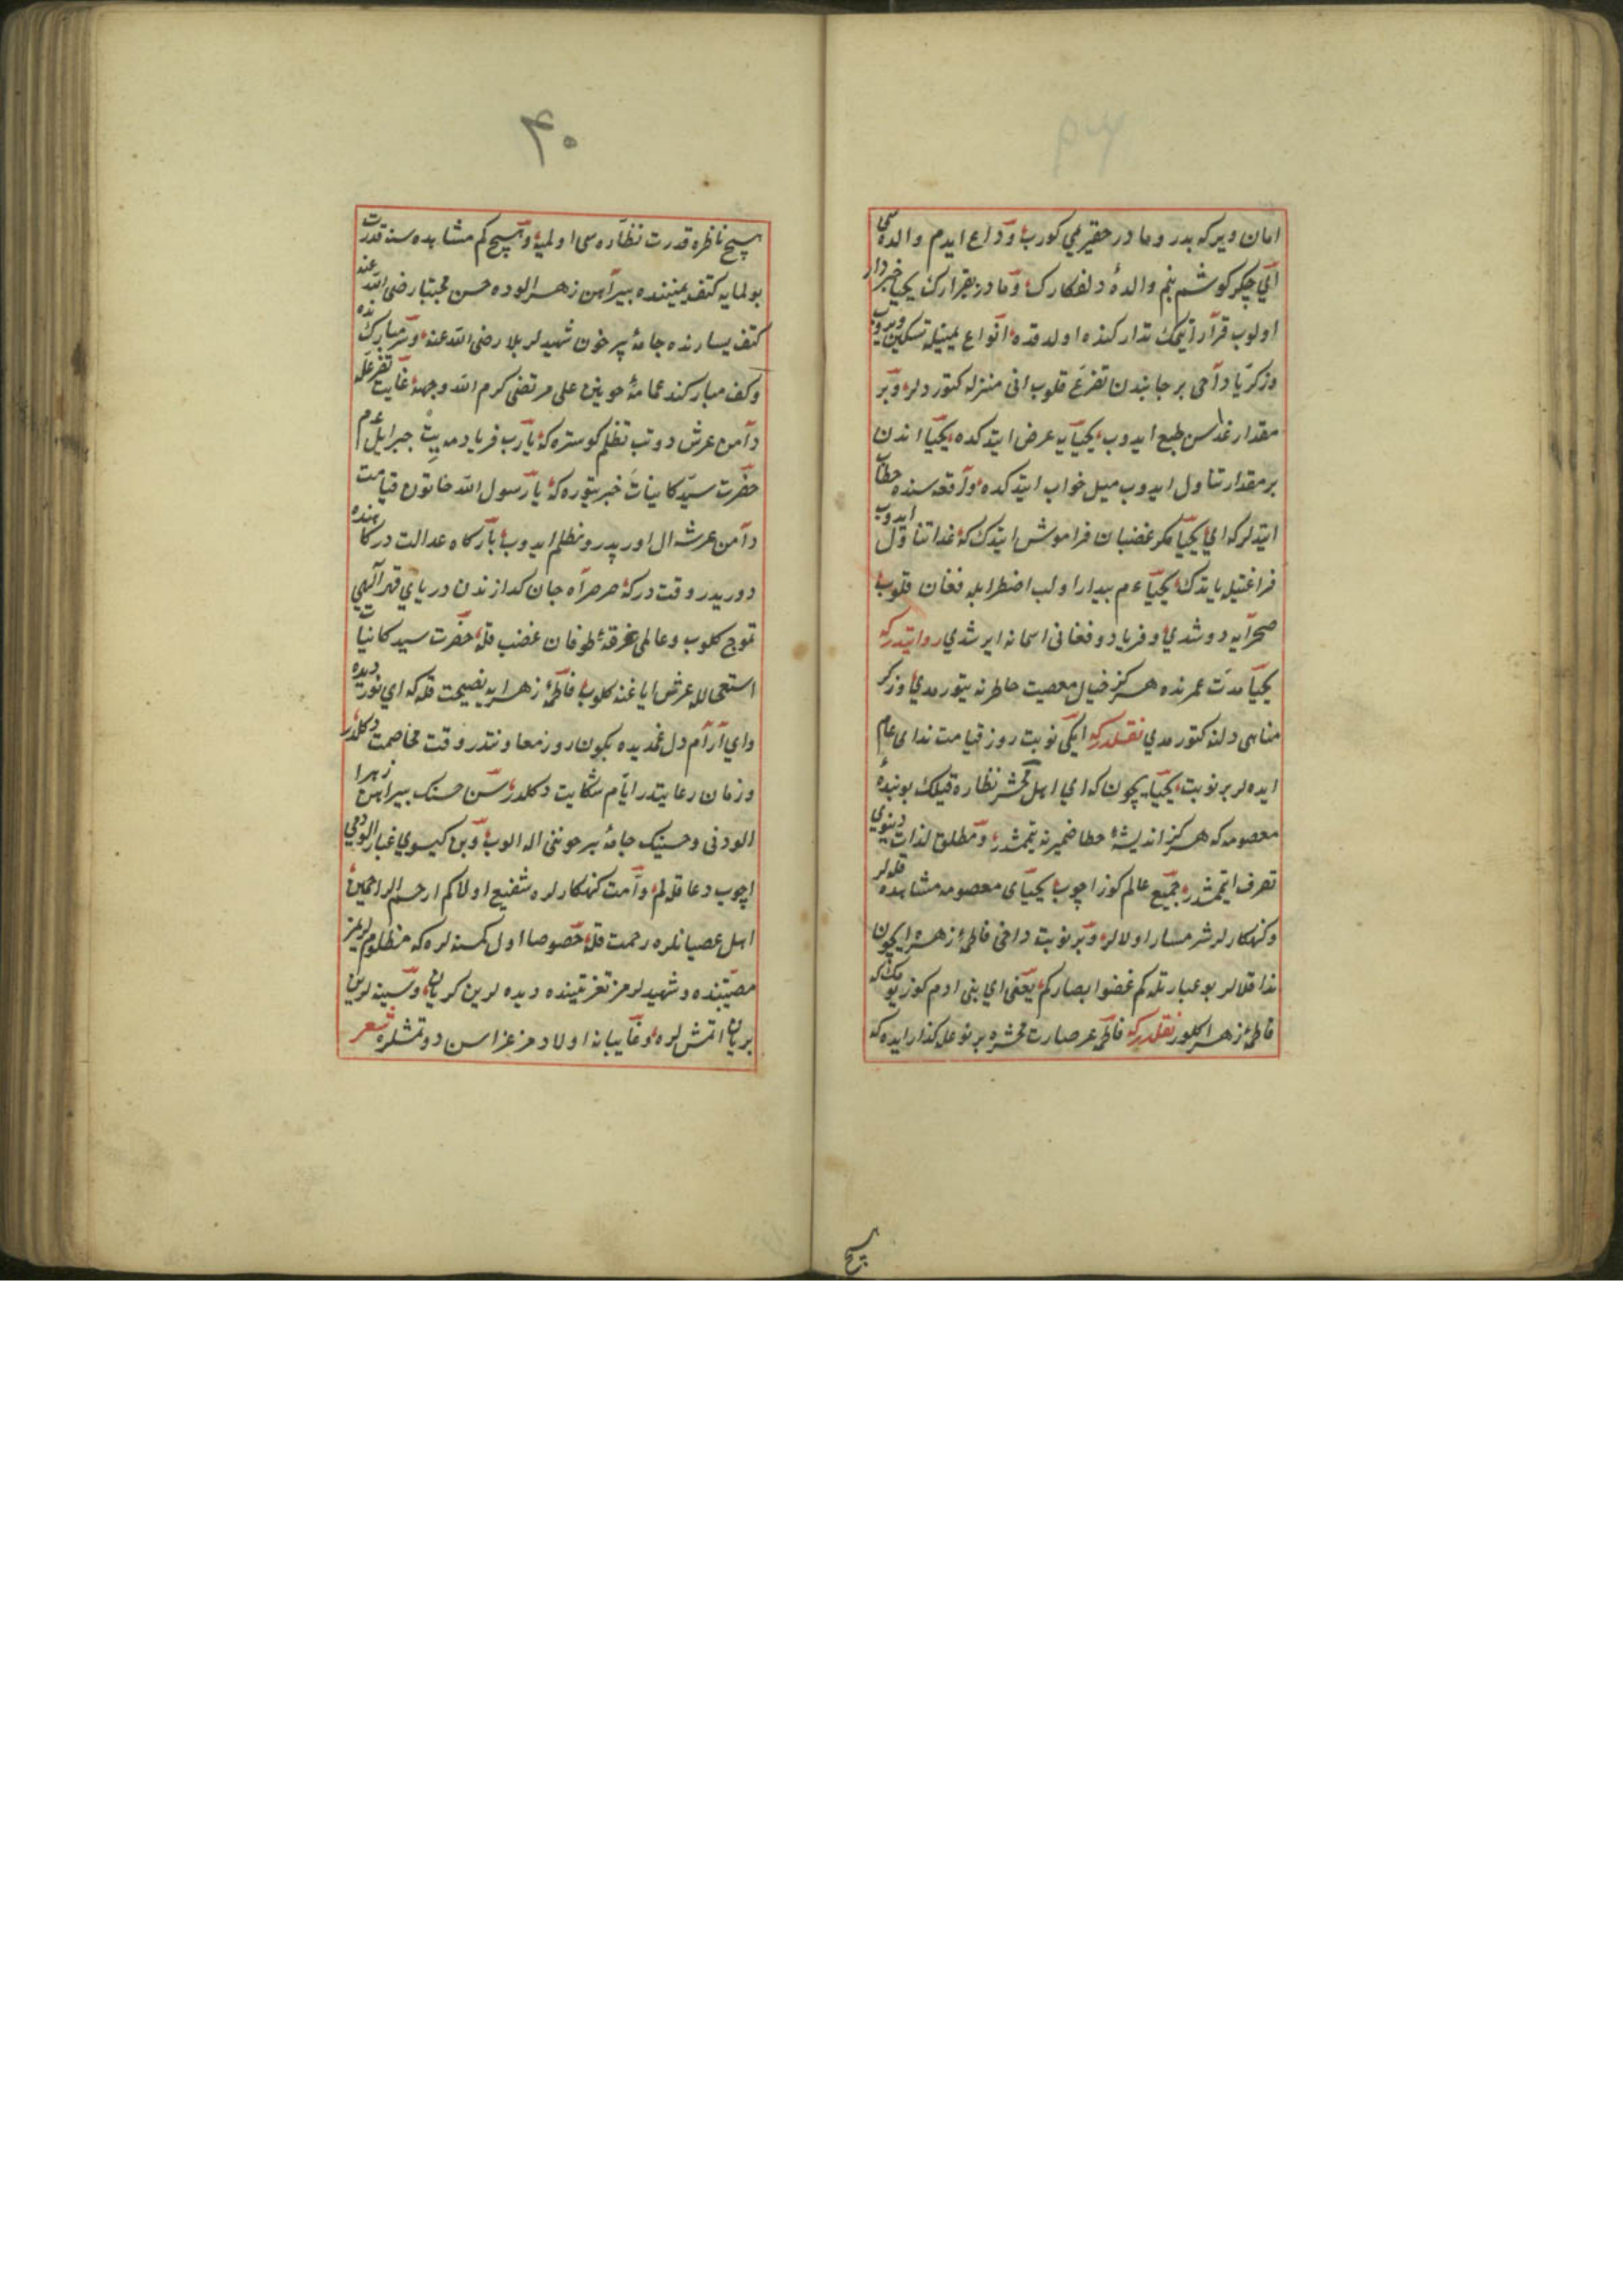 امان ویر که پدر و مادر حقیریمی کوروب وداع ایدم والده سی
ای جکر کوشم بنم والدهٔ دلفکارك و مادر بیقرارك یحیا خبردار
اولوب قرار ایتمك تدارکنده اولدقده انواع یمینله تسکین ویروب
و زکریا داخی بر جانبدن تضرع قلوب انی منزله کتوردلر و بر
مقدار غداسن طبع ایدوب یحیایه عرض ایتدکده یحیا اندن
بر مقدار تناول ایدوب میل خواب ایتدکده واقعه سنده خطاب
ایتدلر که ای یحیا مکر غضبان فراموش ایتدك که غدا تناول ایدوب
فراغتیله یاتدك یحیا عم بیدار اولب اضطرابله فغان قلوب
صحرایه دوشدی و فریاد و فغانی اسمانه ایرشدی روایتدر که
یحیا مدت عمرنده هرکز خیال معصیت خاطرنه یتورمدی و ذکر
مناهی دلنه کتورمدی نقلدر که ایکی نوبت روز قیامت ندای عام
ایده لر بر نوبت یحیا یچون که ای اهل محشر نظاره قیلك بو بندهٔ
معصومه که هرکز اندیشهٔ خطا ضمیرنه یتمشدر و مطلق لذات دنیوی
تصرف ایتمشدر جمیع عالم کوز اچوب یحیای معصومه مشاهده قله لر
و کنهکارلر شرمسار اولالر و بر نوبت داخی فاطمهٔ زهرا یچون
ندا قلالر بو عبارتله کم غضوا ابصارکم یعنی ای بنی ادم کوز یومك که
فاطمهٔ زهرا کلور نقلدر که فاطمه عرصات محشره بر نوعله کذار ایده که
هیچ
۴۰
هیچ ناظره قدرت نظاره سی اولمیه و هیچ کم مشاهده سنه قدرت
بولمایه کتف یمیننده پیراهن زهرالوده حسن مجتبا رضی الله عنه
کتف یسارنده جامهٔ پر خون شهید کربلا رضی الله عنه و سر مبارکنده
و کف مبارکنده عمامهٔ خونین علی مرتضی کرم الله وجهه غایت تضرعله
دامن عرش دوتب تظلم کوستره که یارب فریادمه یت جبرایل عم
حضرت سید کایناته خبر یتوره که یا رسول الله خاتون قیامت
دامن عرشه ال اورپدر و تظلم ایدوب بارکاه عدالت درکاهنده
دوریدر وقتدر که صرصر آه جان کدازندن دریای قهر الهی
تموج کلوب و عالمی غرقهٔ طوفان غضب قله حضرت سید کاینات
استعجالله عرش ایاغنه کلوب فاطمهٔ زهرایه نصیحت قله که ای نور دیده
و ای آرام دل غمدیده بکون روز معاونتدر وقت مخاصمت دکلدر
و زمان رعایتدر ایام شکایت دکلدر سن حسنك پیراهن زهرا
الودنی و حسینك جامهٔ پر خوننی اله الوب و بن کیسوی غبار الودمی
اچوب دعا قلالم و امت کنهکارلره شفیع اولالم کم ارحم الراحمین
اهل عصیانلره رحمت قله خصوصا اول کمسنه لره که مظلوملریمز
مصیبتنده و شهیدلرمز تعزیتینده دیده لرین کریان و سینه لرین
بریان اتمش لره و غایبانه اولادمز عزاسن دوتمشلره شعر